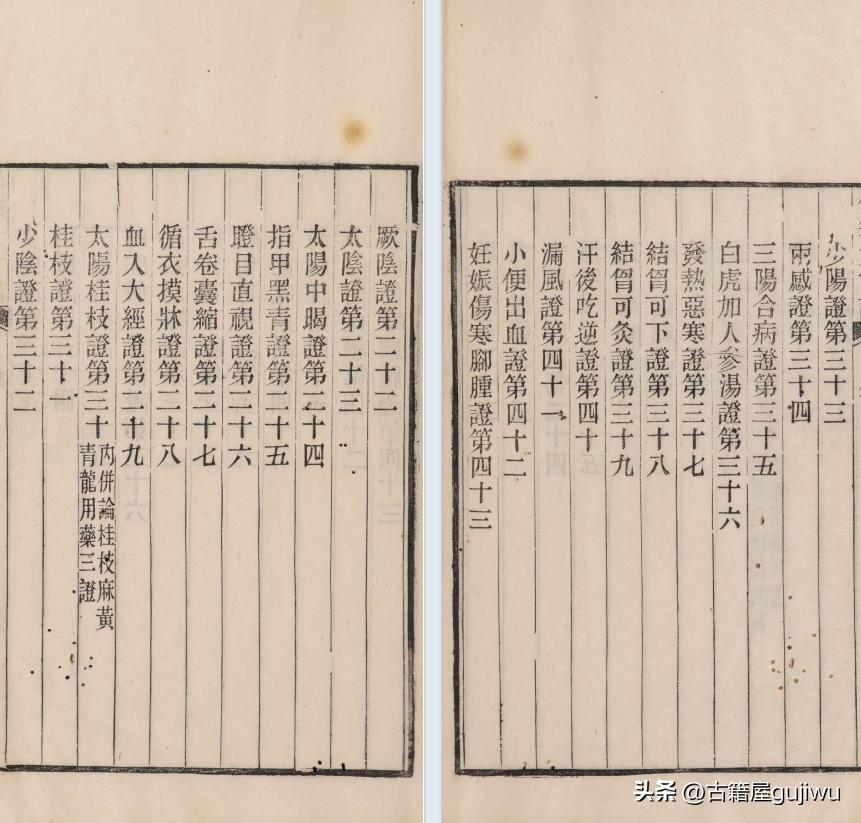 厥陰證第二十二
太陰證第二十三
太陽中暍證第二十四
指甲黑青證第二十五
瞪目直視證第二十六
舌卷囊縮證第二十七
循衣摸牀證第二十八
血入大經證第二十九
太陽桂枝證第三十
內併論桂枝麻黃
青龍用藥三證
桂枝證第三十一
少陰證第三十二
少陽證第三十三
兩感證第三十四
三陽合病證第三十五
白虎加人參湯證第三十六
發熱惡寒證第三十七
結胷可下證第三十八
結胷可灸證第三十九
汗後吃逆證第四十
漏風證第四十一
小便出血證第四十二
妊娠傷寒腳腫證第四十三
头条 @古籍屋gujiwu